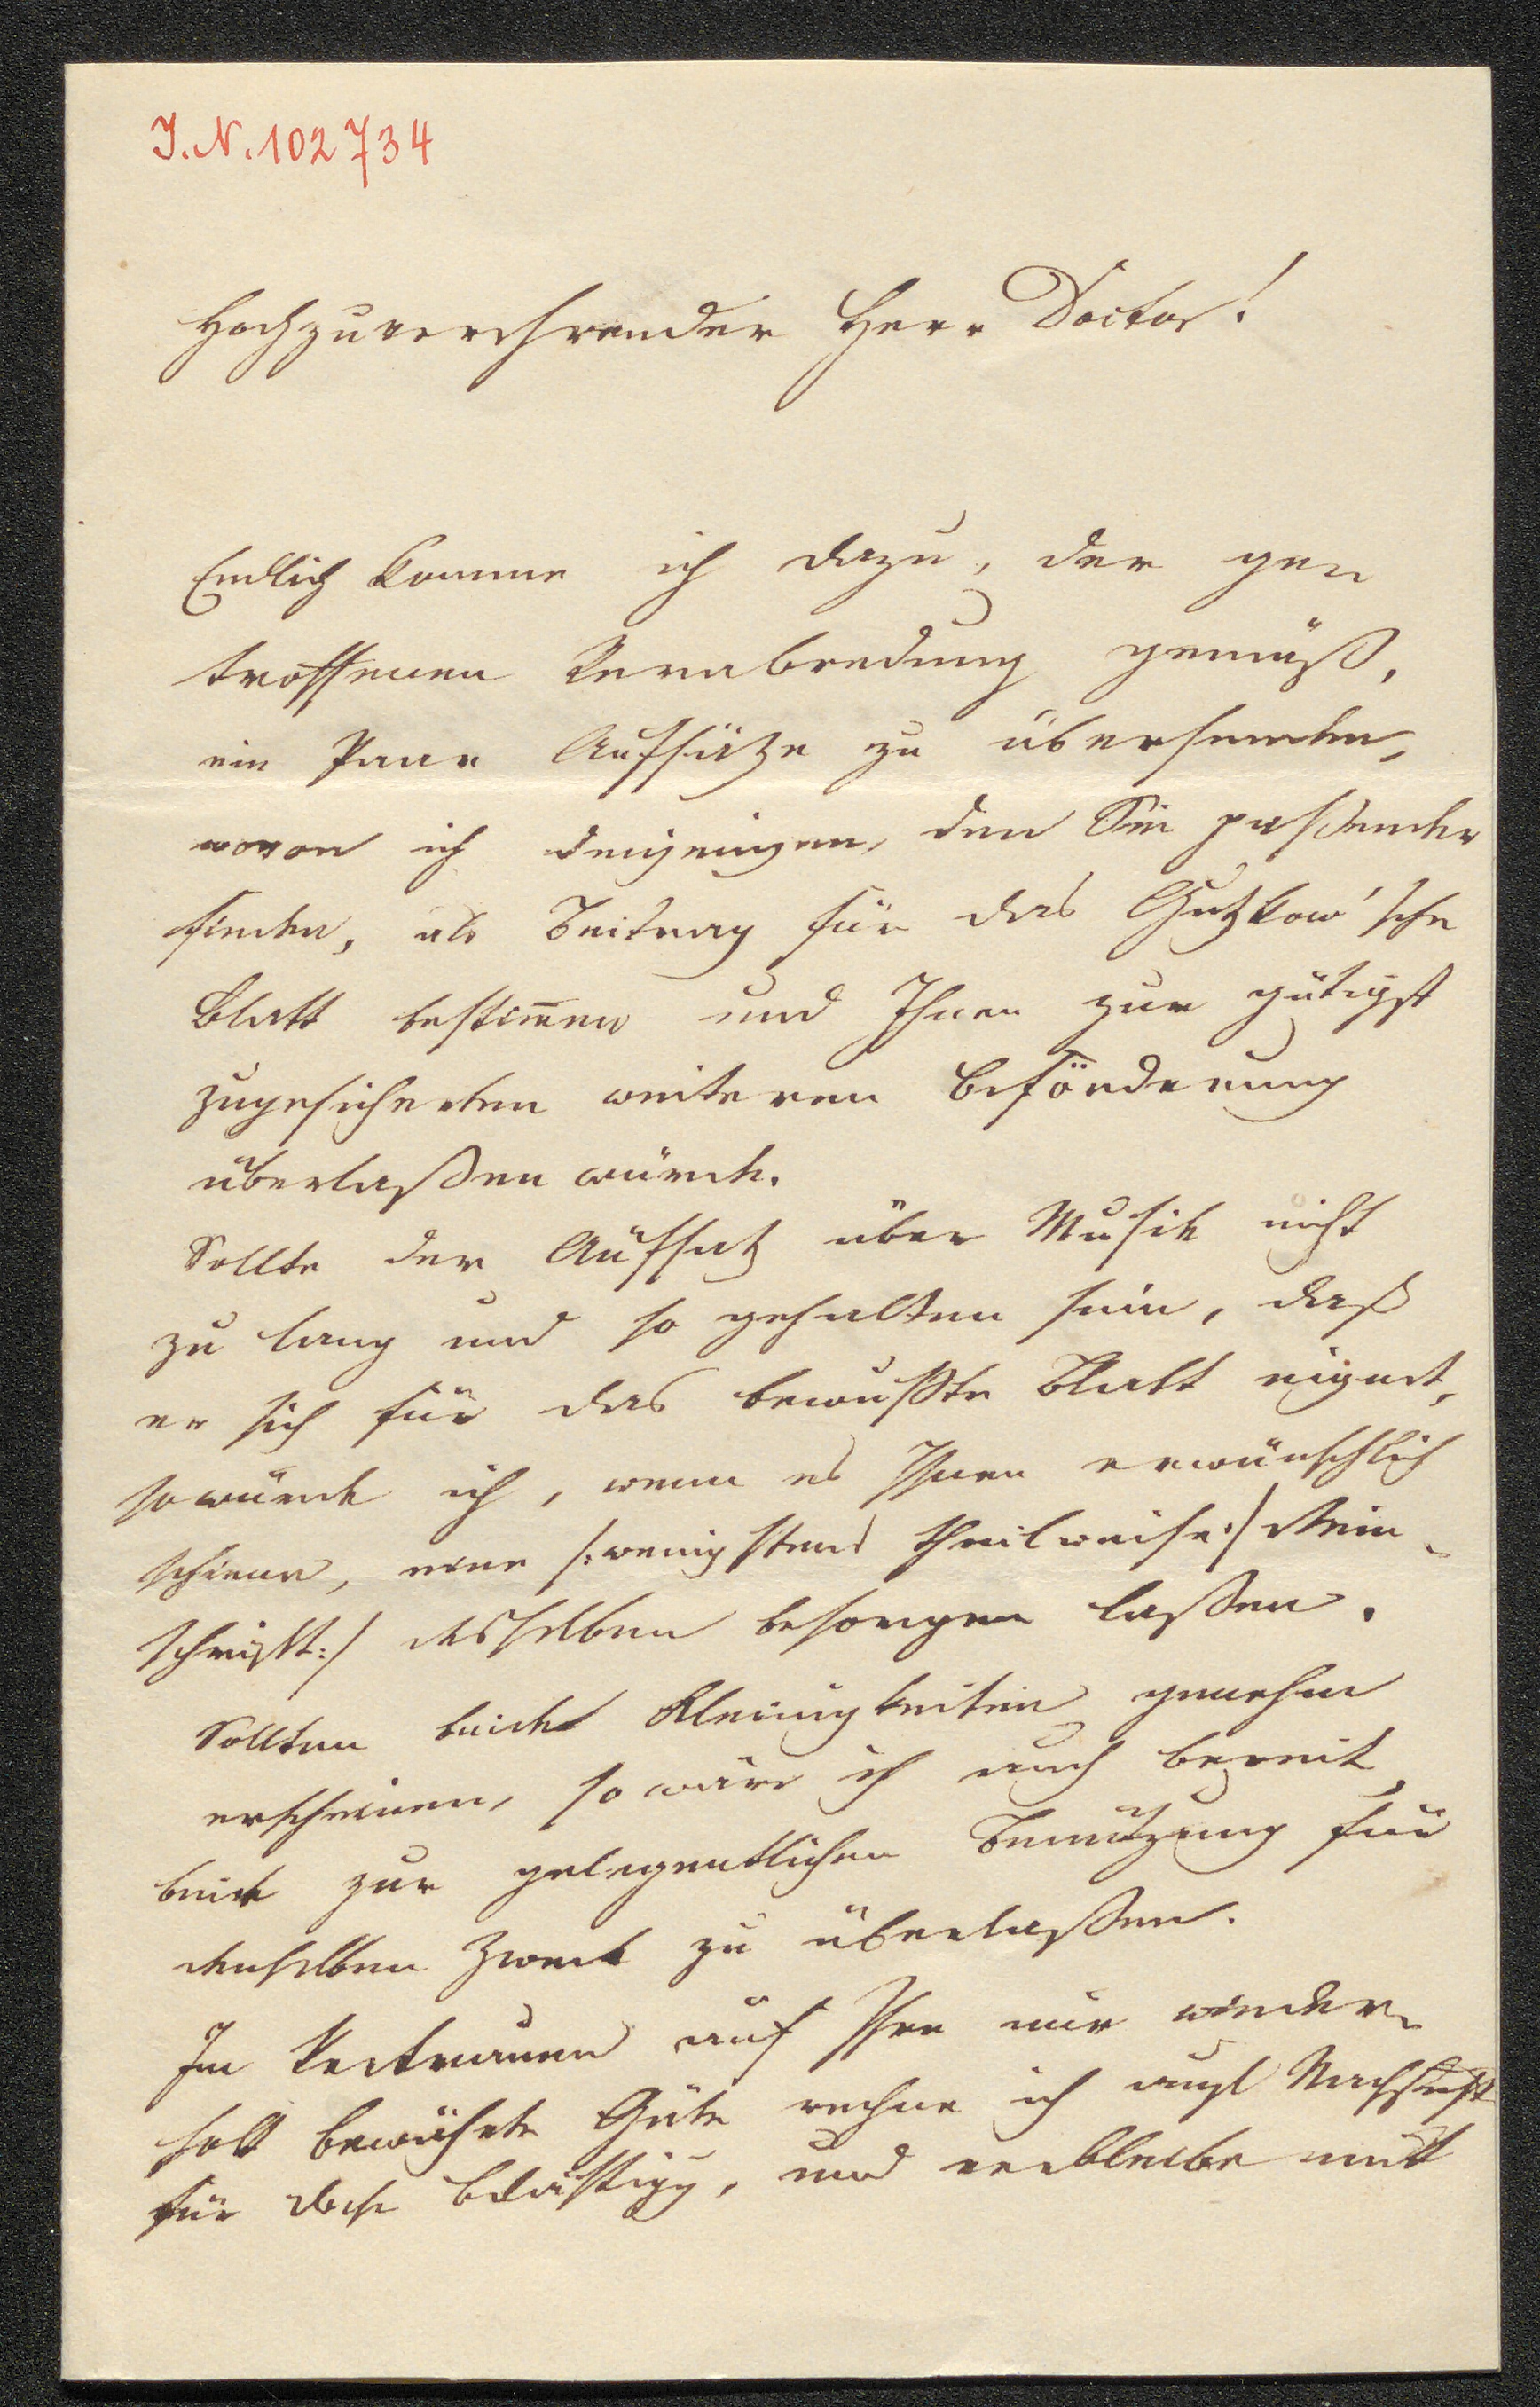 I.N. 102734
Hochzuverehrender Herr Doctor!
Endlich komme ich dazu, der ge-
troffenen Verabredung gemäß,
ein Paar Aufsätze zu übersenden,
wovon ich denjenigen, den Sie passender
finden, als Beitrag für das Gutzkow'sche
Blatt bestim̄en und Ihnen zur gütigst
zugesicherten weiteren Beförderung
überlaßen würde.
Sollte der Aufsatz über Musik nicht
zu lang und so gehalten sein, daß
er sich für das bewußte Blatt eignet,
so würde ich, wenn es Ihnen erwünschlich
schiene, eine /:wenigstens theilweise:/ Rein-
schrift:/ desselben besorgen laßen.
Sollten beide Kleinigkeiten genehm
erscheinen, so wäre ich auch bereit,
beide zur gelegentlichen Benützung für
denselben Zweck zu überlaßen.
Im Vertrauen auf Ihre mir wieder-
holt bewährte Güte rechne ich auch Nachsicht
für diese Belästigg, und verbleibe mit